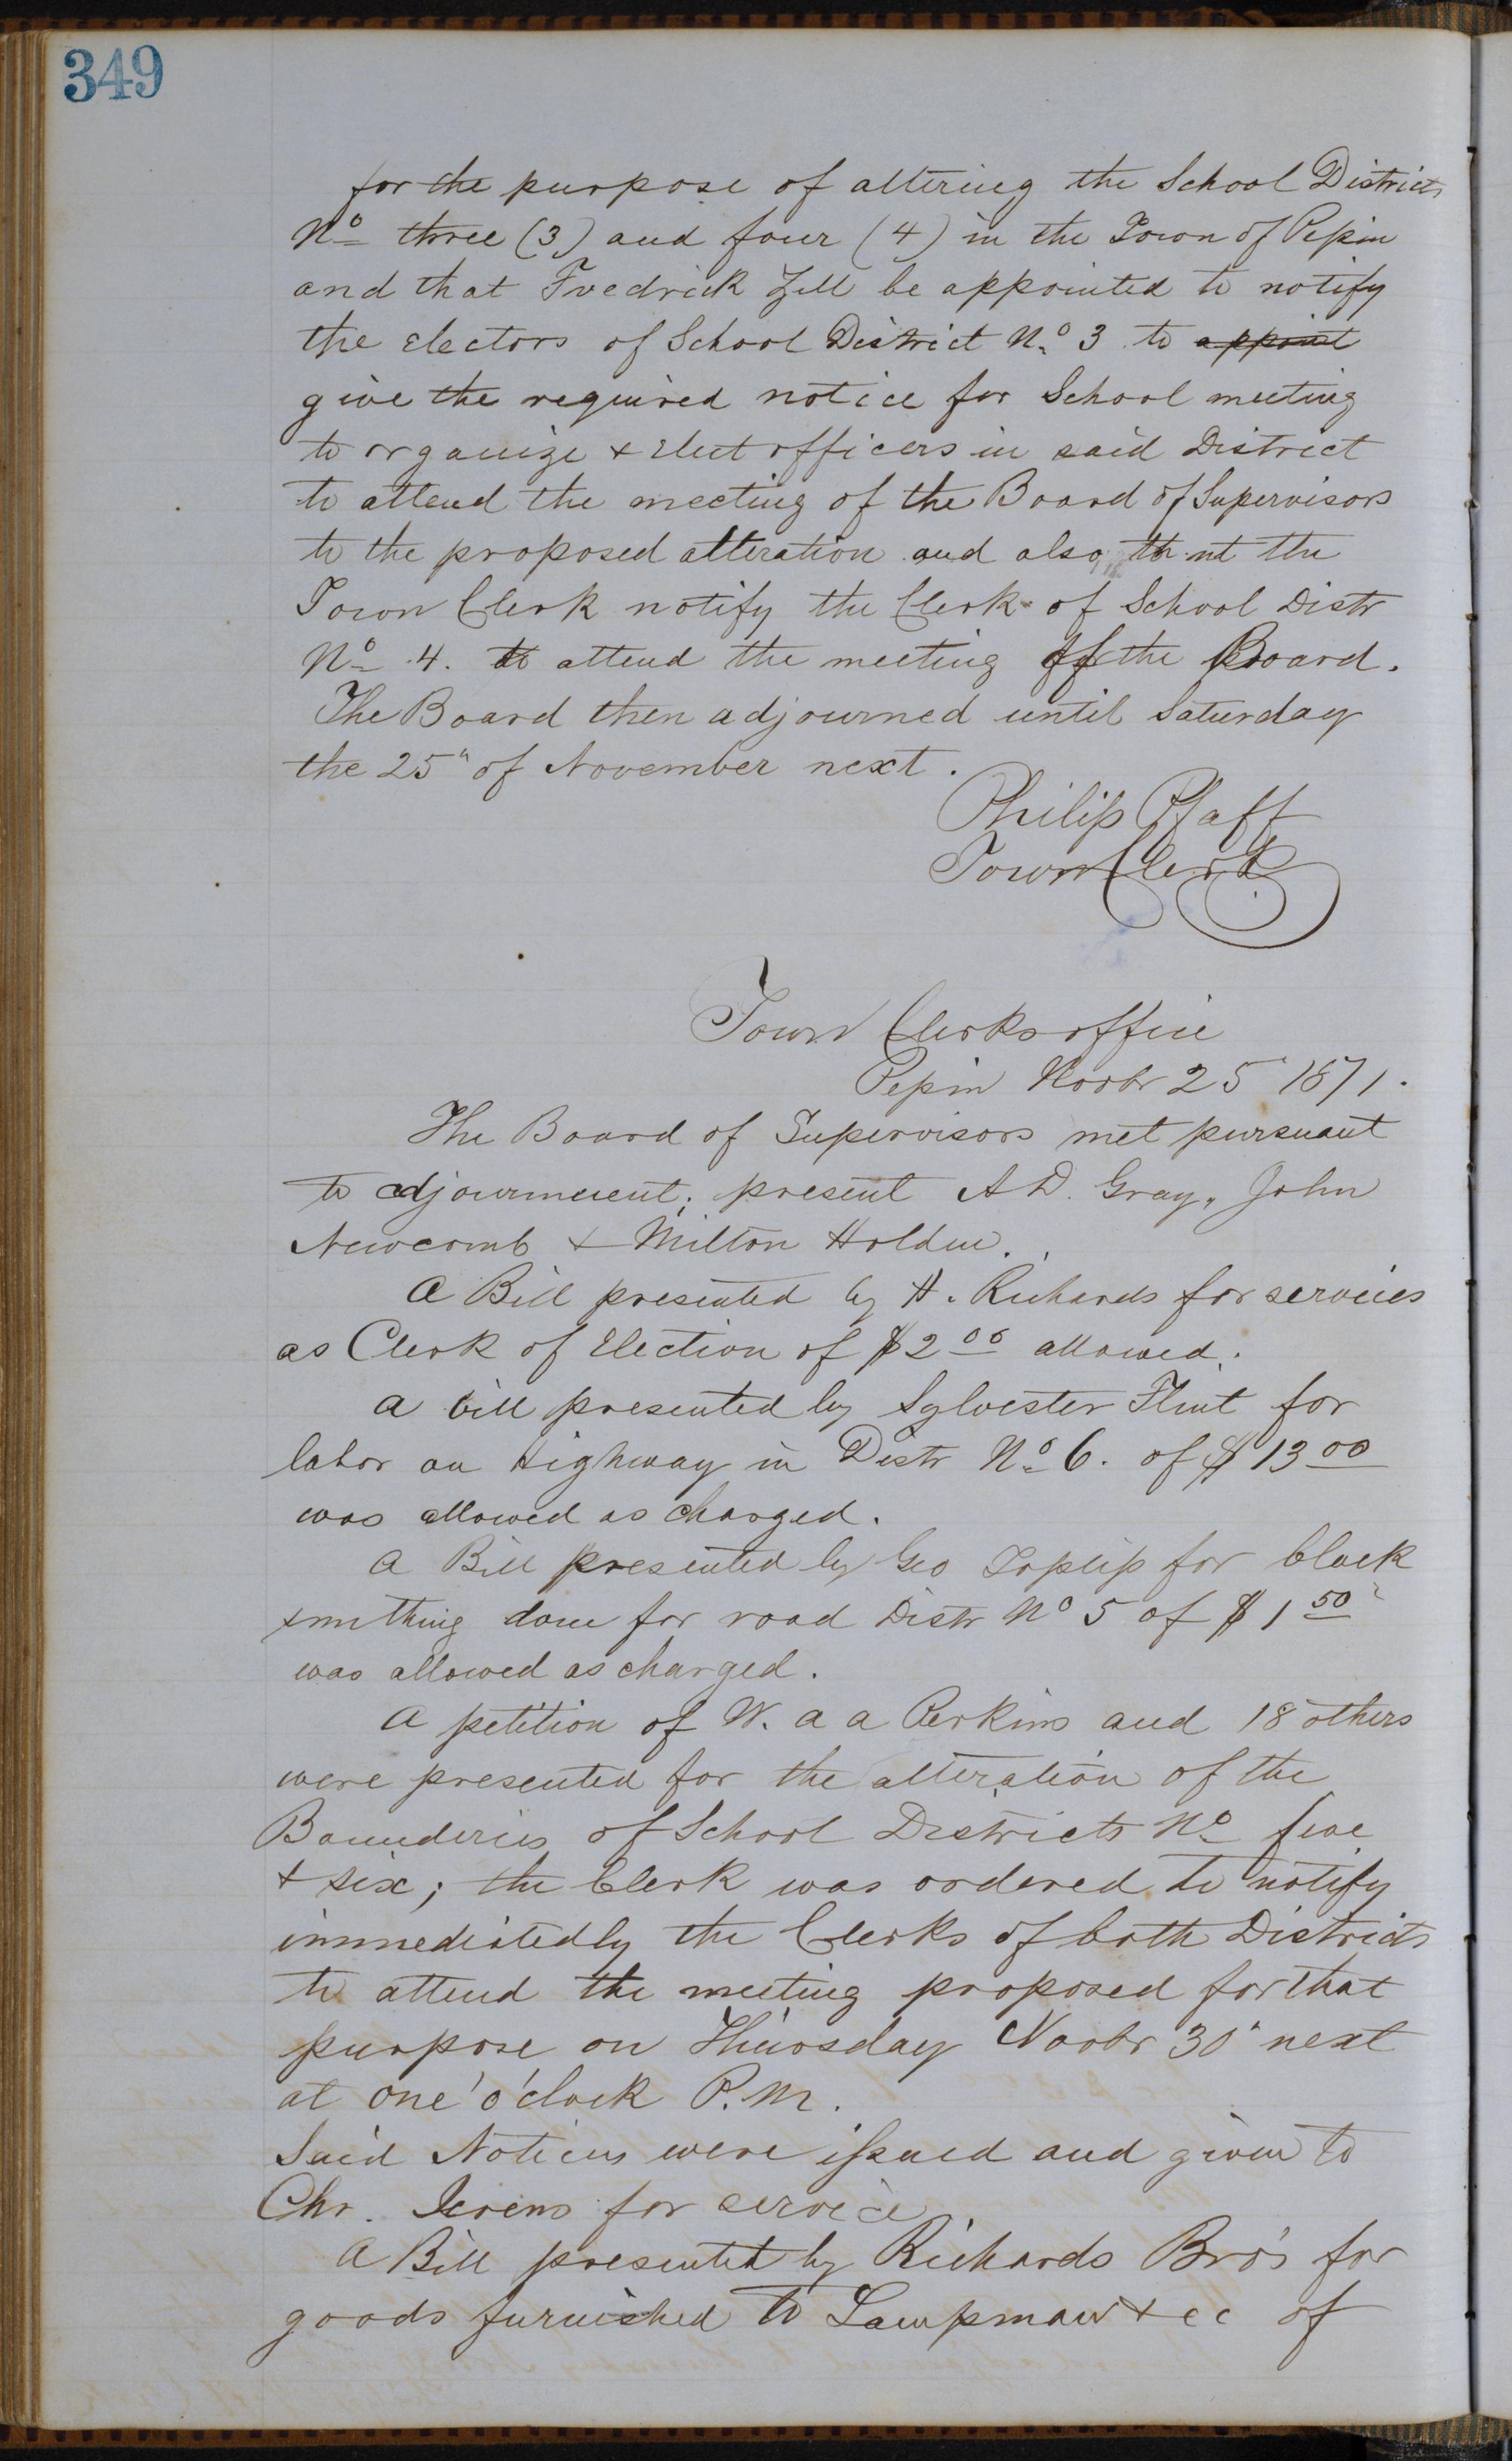 349
for the purpose of altering the School Districts
No three (3) and four (4) in the Town of Pepin
and that Fredrick Zell be appointed to notify
the Electors of School District No 3 to appoint
give the required notice for School meeting
to organize & Elect officers in said District
to attend the meeting of the Board of Supervisors
to the proposed alteration and also that the
Town Clerk notify the Clerk of School Distr
No 4. to attend the meeting of the Board.
The Board then adjourned until Saturday
the 25" of November next.
Philip Pfaff
Town Clerk
Town Clerks office
Pepin Novbr 25 1871.
The Board of Supervisors met pursuant
to adjournment; present A D. Gray, John
Newcomb & Milton Holden.
A Bill presented by H. Richards for services
as Clerk of Election of $2 00 allowed.
A bill presented by Sylvester Flint for
labor on Highway in Distr No 6. of $13 00
was allowed as charged.
A Bill presented by Geo Toplip for black
smithing done for road Distr No 5 of $1 50
was allowed as charged.
A petition of W. A A Perkins and 18 others
were presented for the alteration of the
Bounderies of School Districts No five
& six; the Clerk was ordered to notify
immediatedly the Clerks of both Districts
to attend the meeting proposed for that
purpose on Thursday Novbr 30" next
at one o'clock P.M.
Said Notices were issued and given to
Chr. for service
A Bill presented by Richards Bro's for
goods furnished to Lampman & cc of